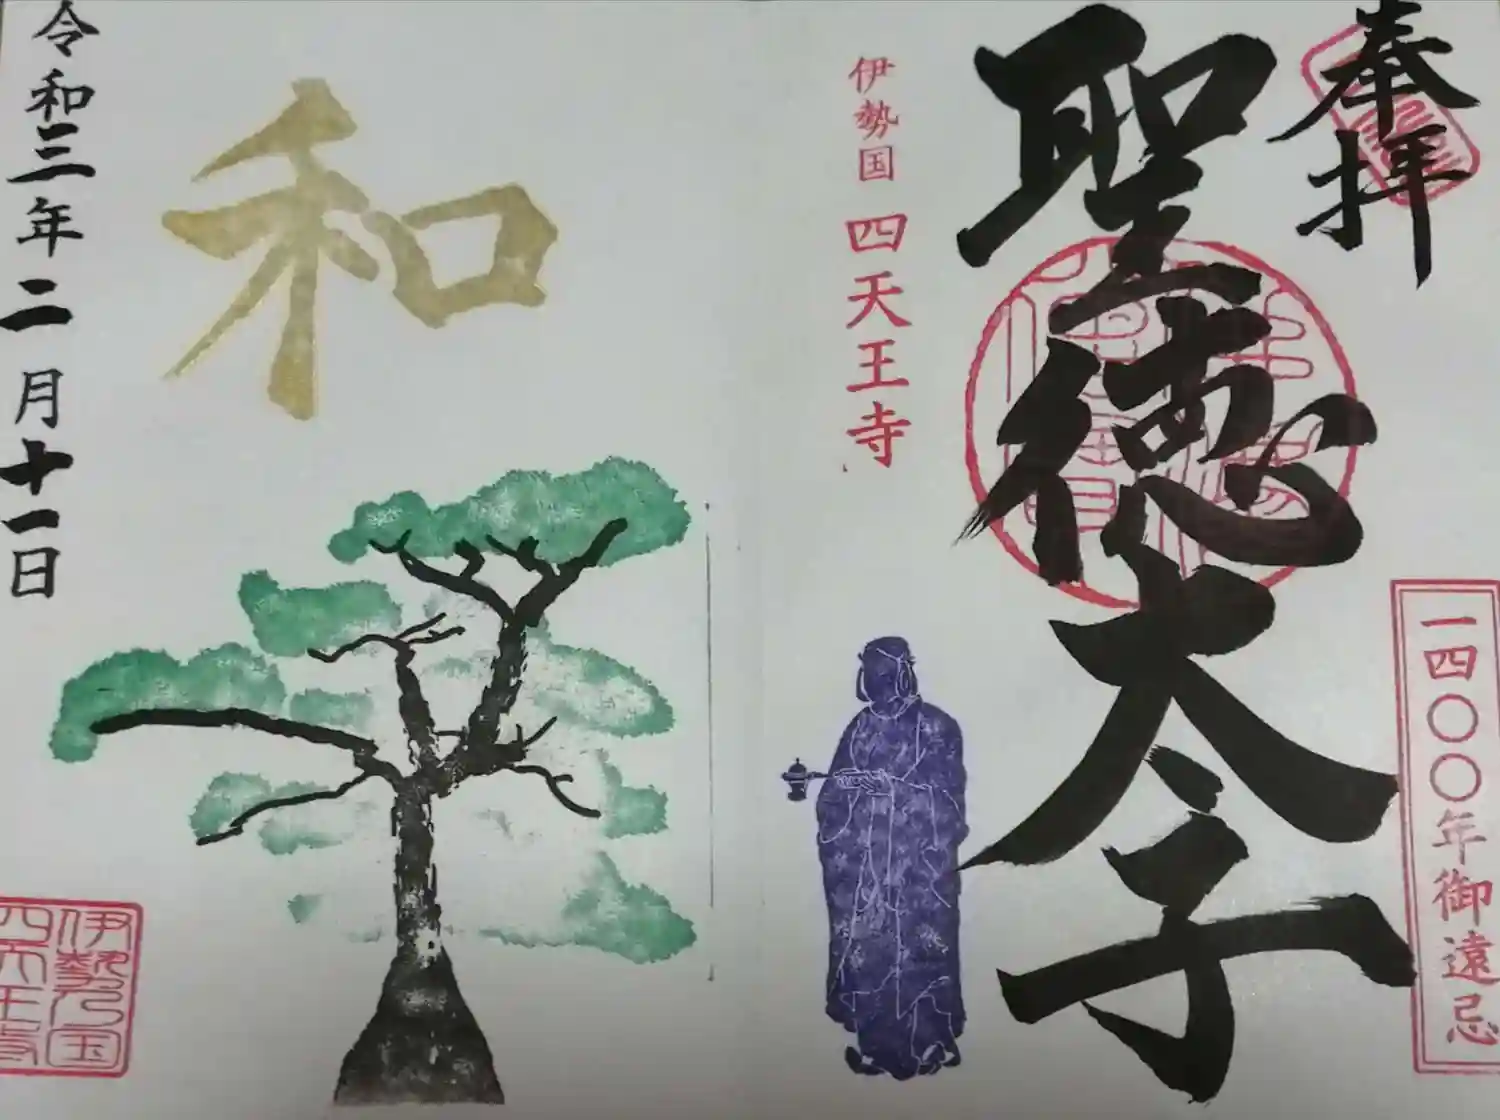 奉拝
一四〇〇年御遠忌
聖徳太子
伊勢国 四天王寺
和
令和三年二月十一日
伊勢国
四天王寺